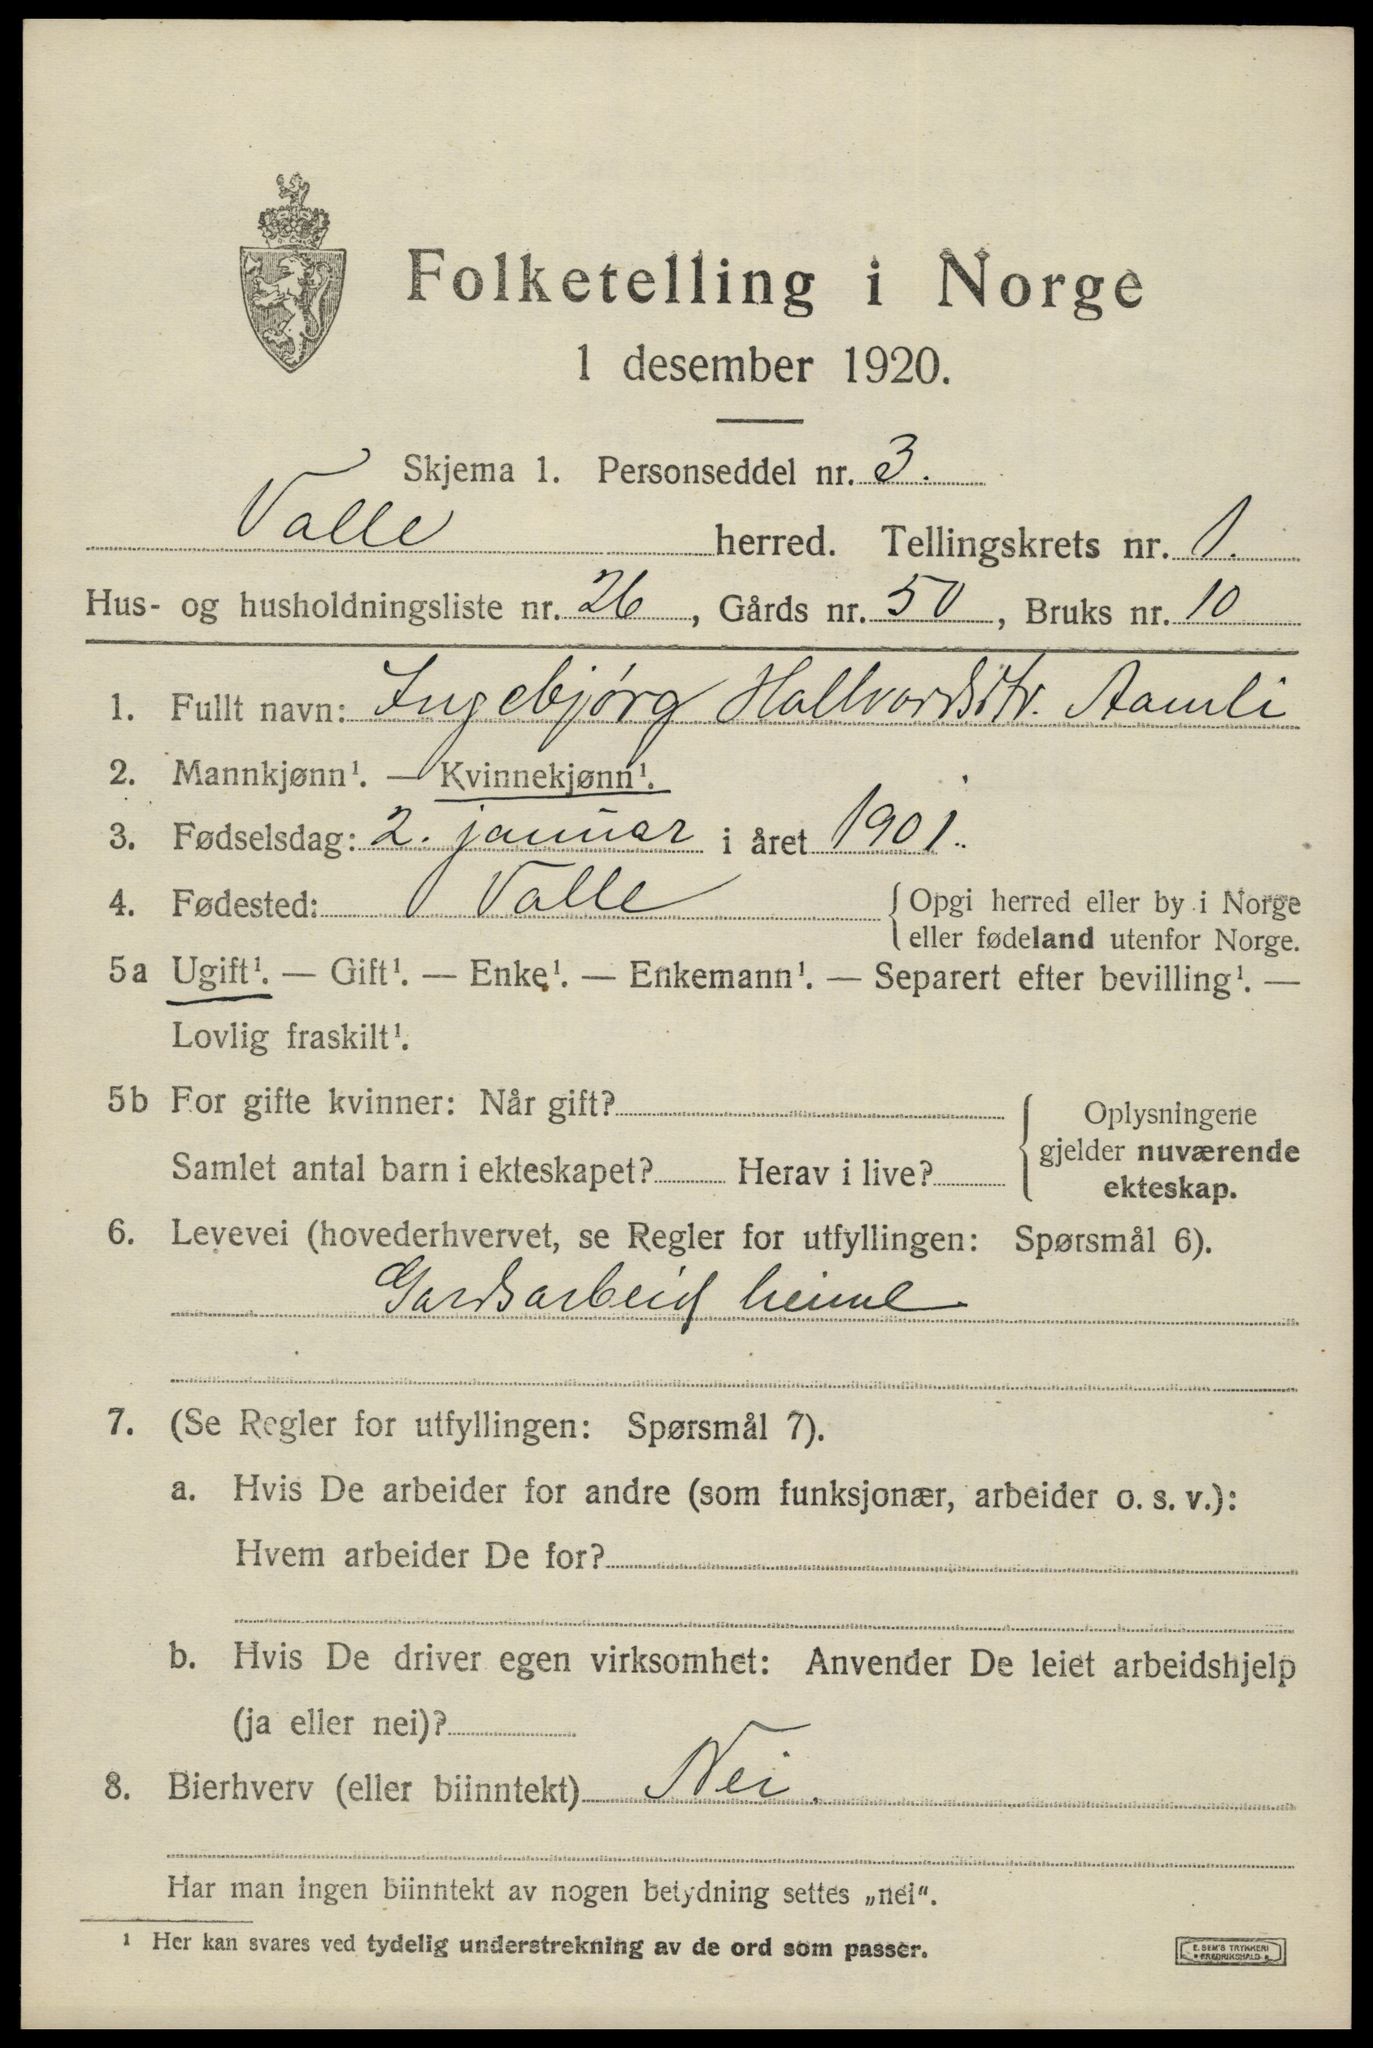 Folketelling i Norge
1 desember 1920.
Skjema 1. Personseddel nr. 3.
Valle herred. Tellingskrets nr. 1.
Hus- og husholdningsliste nr. 26, Gårds nr. 50, Bruks nr. 10
1. Fullt navn: Ingebjørg Hallvardsdtr. Aamli
2. Mannkjønn¹. — Kvinnekjønn¹.
3. Fødselsdag: 2. januar i året 1901.
4. Fødested: Valle {Opgi herred eller by i Norge
eller fødeland utenfor Norge.
5a Ugift¹. — Gift¹. — Enke¹. — Enkemann¹. — Separert efter bevilling¹. —
Lovlig fraskilt¹.
5b For gifte kvinner: Når gift? {Oplysningene
gjelder nuværende
Samlet antal barn i ekteskapet? Herav i live? ekteskap.
6. Levevei (hovederhvervet, se Regler for utfyllingen: Spørsmål 6).
Gardsarbeid heime
7. (Se Regler for utfyllingen: Spørsmål 7).
a. Hvis De arbeider for andre (som funksjonær, arbeider o. s. v.):
Hvem arbeider De for?
b. Hvis De driver egen virksomhet: Anvender De leiet arbeidshjelp
(ja eller nei)?
8. Bierhverv (eller biinntekt) Nei.
Har man ingen biinntekt av nogen betydning settes „nei“.
¹ Her kan svares ved tydelig understrekning av de ord som passer.
E. SEM'S TRYKKERI
FREDRIKSHALD